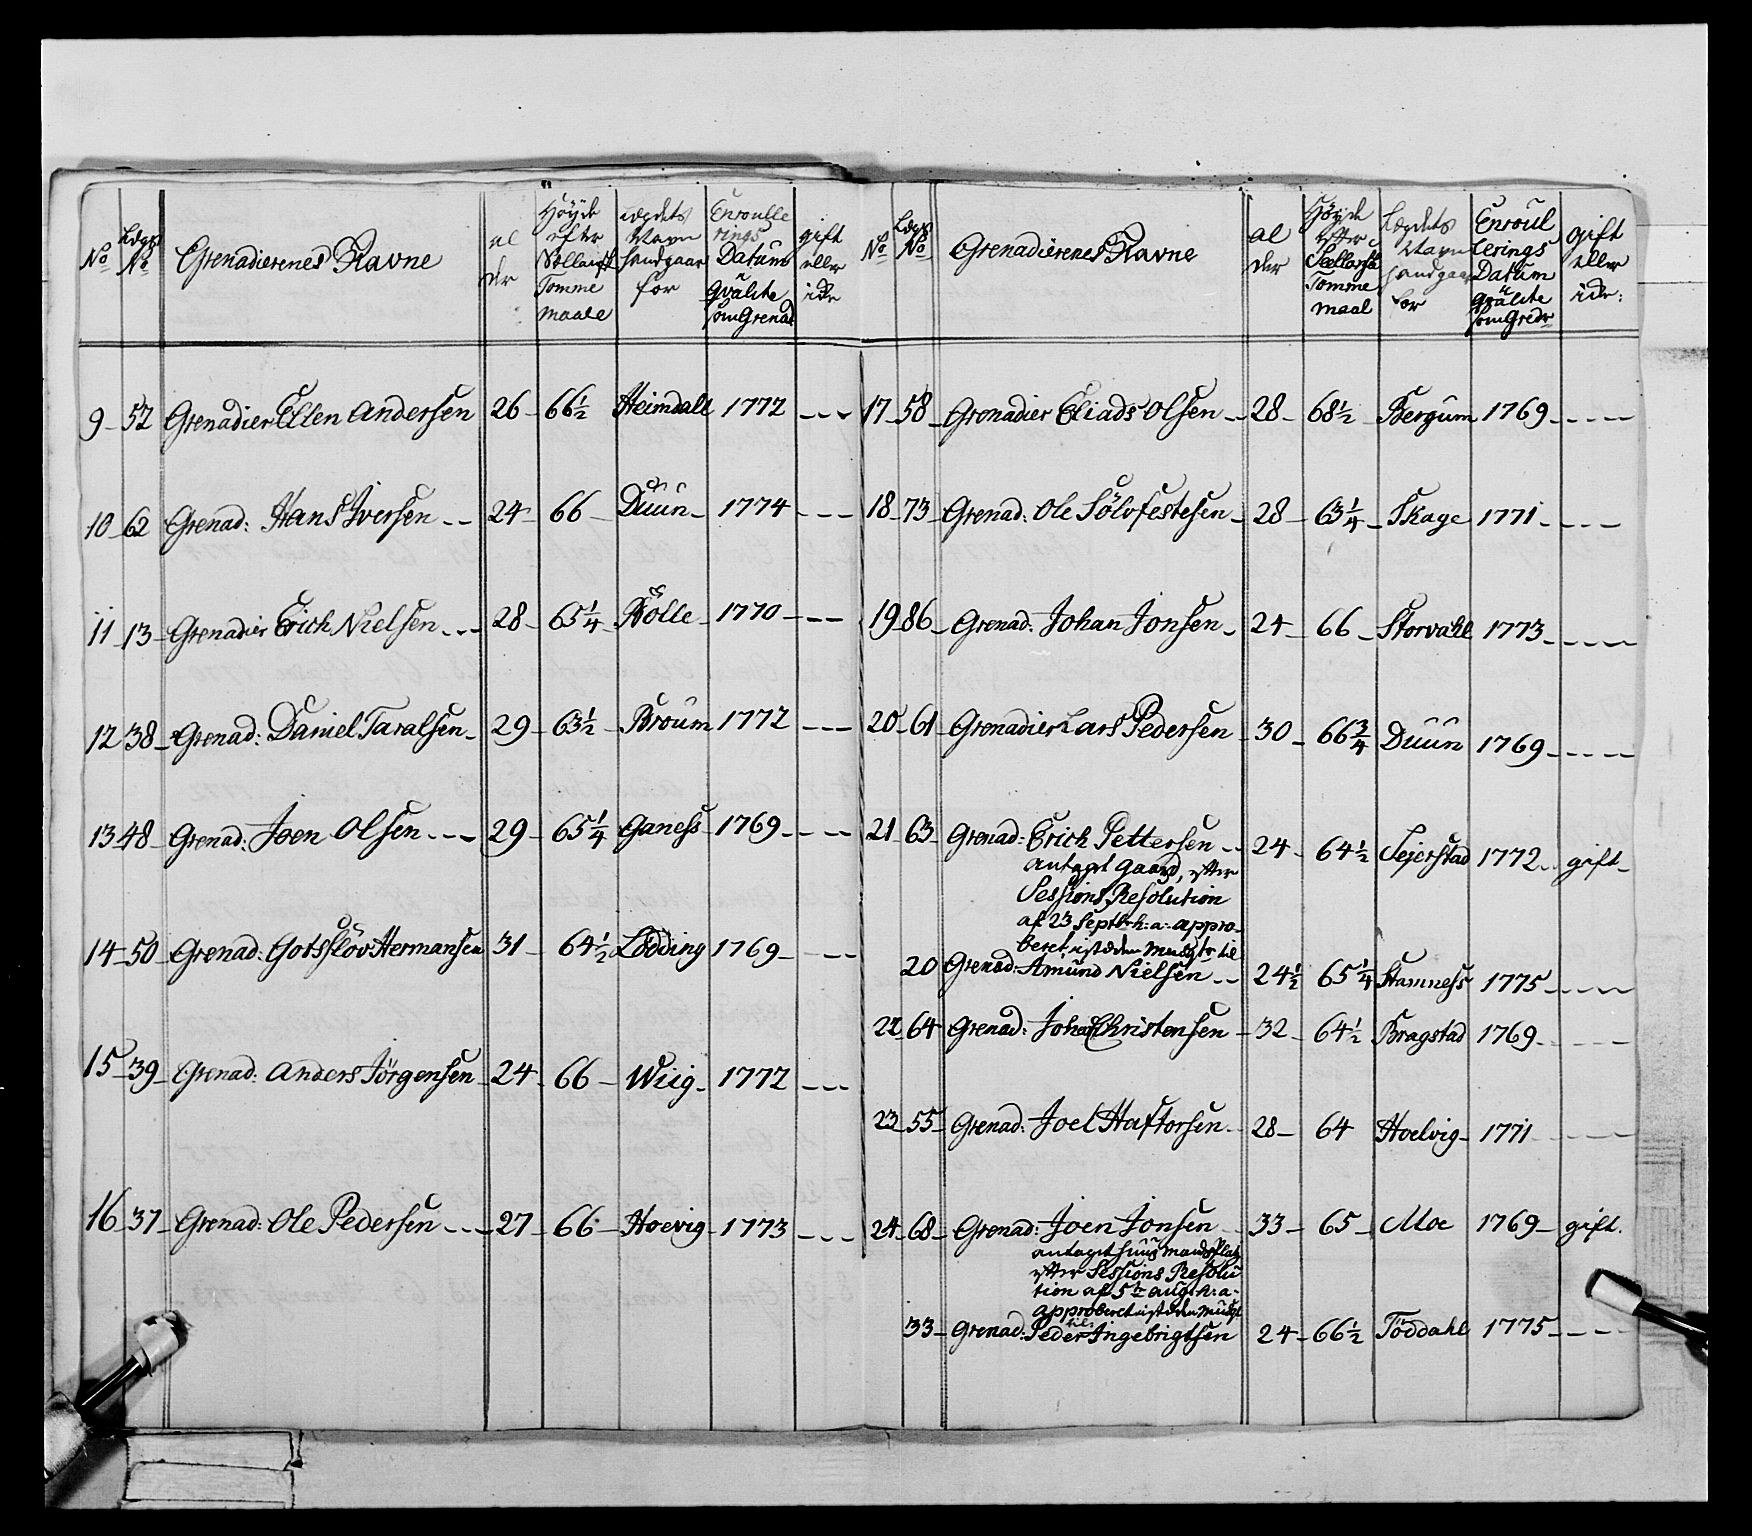 No
Lægs No
Grenadierenes Navne
al der
Höyde efter Tomme maale
Lægdets Navn hand gaar for
Enroullerings Datum qvalite som Grenad
gift eller ide
9 - 52 Grenadier Ellen Andersen 26 - 66½ Heimdall 1772 - - -
10 - 62 Grenad: Hans Iversen - - 24 - 66 - Duun - 1774 - - -
11 - 13 - Grenadier Erich Nielsen - - - 28 - 65¼ Rölle - 1770 - - -
12 38 - Grenad: Daniel Taralsen - 29 - 63½ - Broum 1772 - - -
13 48 - Grenad: Joen Olsen - - - 29 - 65¼ Ganess - 1769 - - - -
14 - 50 - Grenad: Gotsklöv Hermansen 31 - 64½ Lödding 1769 - - - -
15 - 39 - Grenad: Anders Jörgensen - 24 - 66 - Wiig - 1772 - - -
16 - 37 - Grenad: Ole Pedersen - - - 27 - 66 - Hoevig - 1773 - - -
No
Lægs No
Grenadierenes Navne
al der
Höyde efter Tomme maal
Lægdets Navn hand gaar for
Enroullerings Datum qvalite som Gredr
gift eller ide:
17 - 58 - Grenadier Eliads Olsen - - 28 - 68½ - Bergum 1769 - - - -
18 - 73 - Grenad: Ole Sölvfestesen - 28 - 63¼ - Skage 1771 - - - -
19 86 - Grenad: Johan Jonsen - 24 - 66 - Storvahl 1773 - - - -
20 - 61 - Grenadier Lars Pedersen - 30 - 66¾ Duun 1769 - - - -
21 63 - Grenad: Erich Pettersen - - 24 - 64½ Sejerstad 1772 - gift -
antaget Gaard, efter
Sessions Resolution
af 23 Septbr h: a: appro-
beret, istæden til
20 Grenad: Amund Nielsen - - 24½ 65¼ Stamness 1775 - - - -
22 64 - Grenad: Johan Christensen - 32 - 64½ Bragstad 1769 - - - -
23 - 55 - Grenad: Joel Haftorsen - 28 - 64 Hoelvig - 1771 - - - -
24 - 68 - Grenad: Joen Jonsen 33 - 65 - Moe 1769 - gift.
antaget huusmands Plads
efter Sessions Resolu
tion af 5te Aug: h: a:
approberet istæden
til
33 - Grenad: Peder Ingebrigtsen 24 - 66½ Töddahl 1775 - - - -